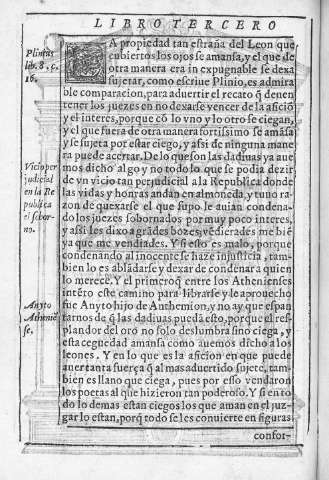 LIBRO TERCERO
Plinius
lib. 8. c.
16.
LA propiedad tan estraña del Leon que
cubiertos los ojos se amansa, y el que de
otra manera era in expugnable se dexa
sujetar, como escriue Plinio, es admira
ble comparacion, para aduertir el recato q̃ denen
tener los juezes en no dexarse vencer de la aficiõ
y el interes, porque cõ lo vno y lo otro se ciegan,
y el que fuera de otra manera fortissimo se amãsa
y se sujeta por estar ciego, y assi de ninguna mane
ra puede acertar. De lo que son las dadiuas ya aue
mos dicho algo y no todo lo que se podia dezir
Vicio per
judicial
en la Re
publica
el sobor-
no.
de vn vicio tan perjudicial a la Republica donde
las vidas y honras andan en almoneda, y tuuo ra-
zon de quexarse el que supo le auian condena-
do los juezes sobornados por muy poco interes,
y assi les dixo a grãdes bozes, vẽdierades me biẽ
ya que me vendiades. Y si esto es malo, porque
condenando al inocente se haze injusticia, tam-
bien lo es ablãdarse y dexar de condenar a quien
lo merece. Y el primero q̃ entre los Athenienses
intẽto este camino para librarse y le aprouecho
Anyto
Atheniẽ
se.
fue Anyto hijo de Anthemion, y no ay que espan
tarnos de q̃ las dadiuas puedã esto, porque el res-
plandor del oro no solo deslumbra sino ciega, y
esta ceguedad amansa como auemos dicho a los
leones. Y en lo que es la aficion en que puede
auer tanta fuerça q̃ al mas aduertido sujete, tam-
bien es llano que ciega, pues por esso vendaron
los poetas al que hizieron tan poderoso. Y si en to
do lo demas estan ciegos los que aman en el juz-
gar lo estan, porq̃ todo se les conuierte en figuras
confor-